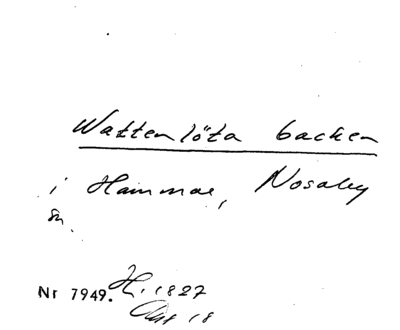 Wattenlöta backen
i Hammar, Nosaby
sn.
Nr 7949. H. 1827
Akt 18